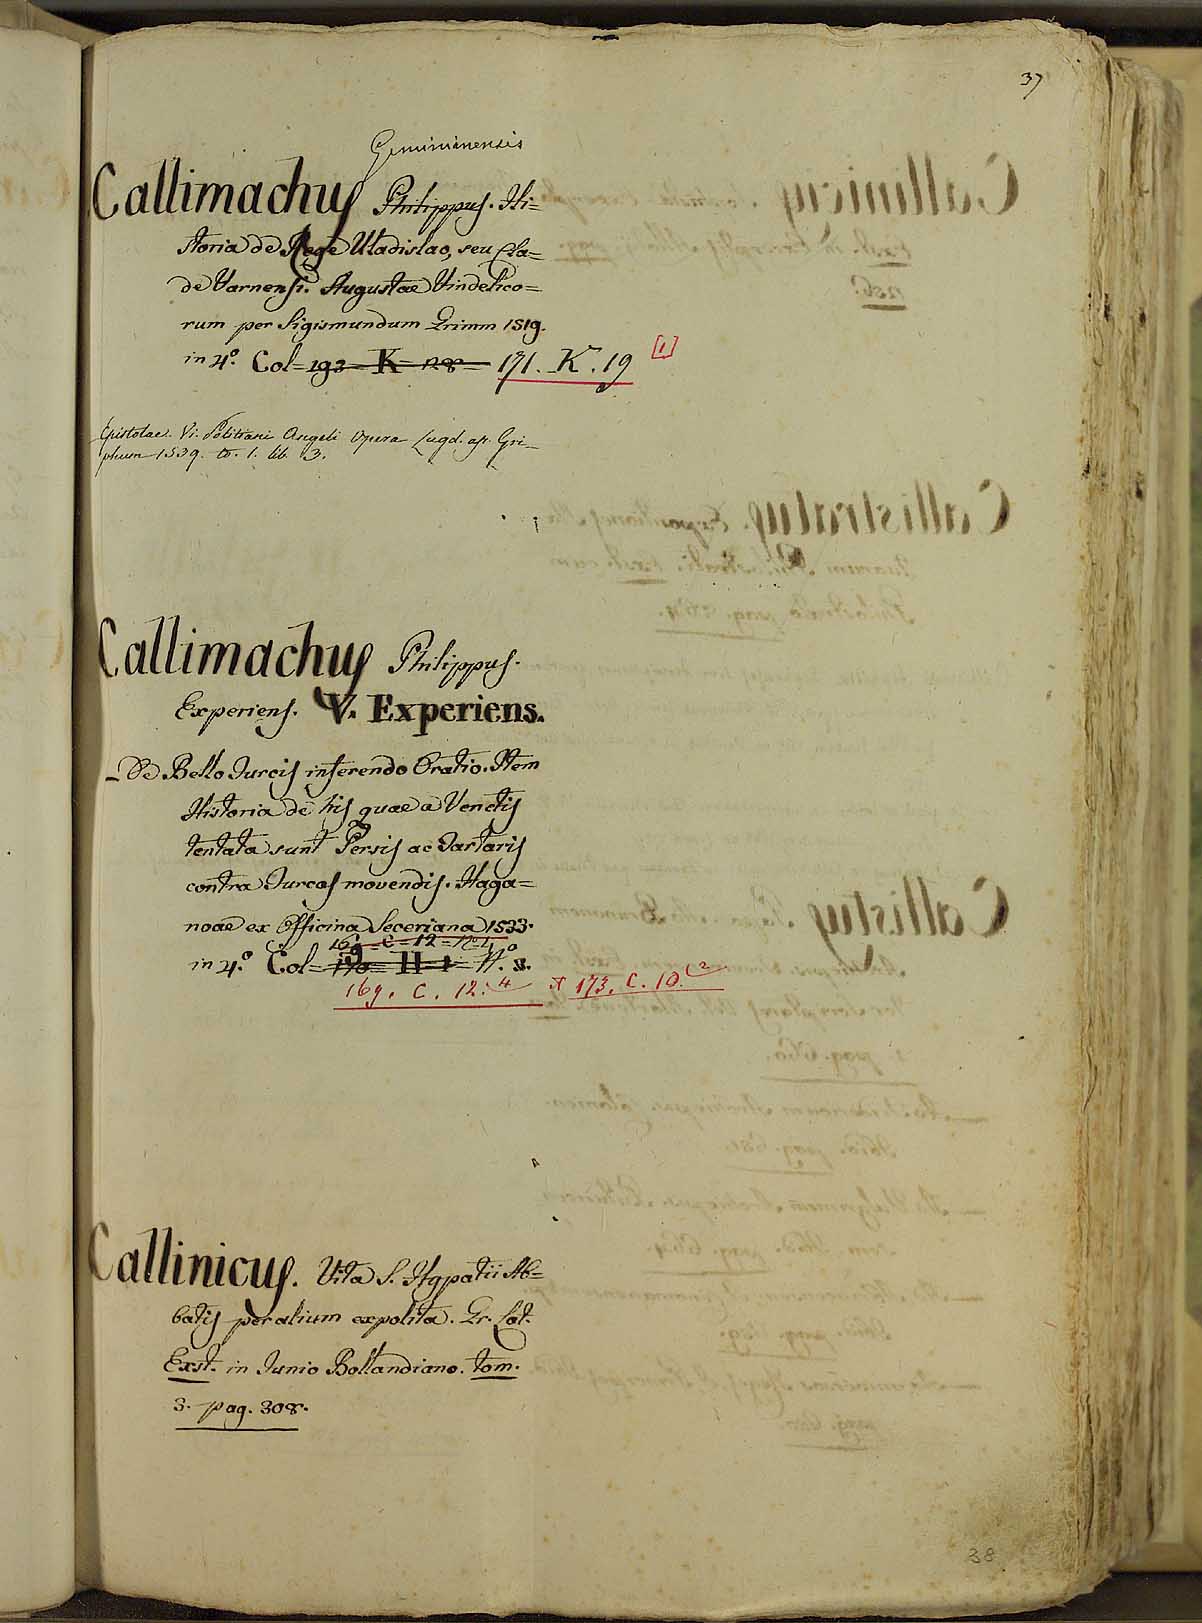 37
Geminianensis
Callimachus Philippus. His=
toria de Rege Uladislao, seu Cla=
de Varnensi. Augustae Vindelico=
rum per Sigismundum Grimm 1519.
in 4.° Col= 193= K= 28= 171. K. 19 [1]
Epistolae. Vi. Politiani Angeli Opera Lugd. ap. Gri=
phium 1539. to. 1. lib. 3.
Callimachus Philippus.
Experiens. V. Experiens.
– De Bello Turcis inferendo Oratio. Item
Historia de his quae a Venetis
tentata sunt Persis ac Tartaris
contra Turcas movendis. Haga=
noae ex Officina Seceriana 1533.
169= C= 12= n° 4
in 4.° Col= 170= H= 1= N.° 8.
169. C. 12. 4 + 173. C. 10. 2
Callinicus. Vita S. Hypatii Ab=
batis per alium expolita. Gr. Lat.
Exst. in Junio Bollandiano. tom.
3. pag. 308.
38